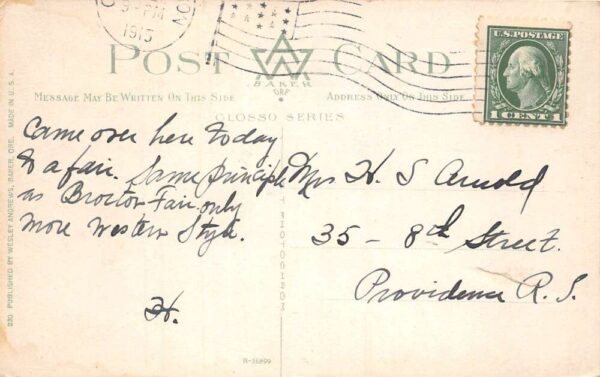 9-PM
1915
POST CARD
BAKER
ORE
MESSAGE MAY BE WRITTEN ON THIS SIDE
ADDRESS ONLY ON THIS SIDE
GLOSSO SERIES
U.S. POSTAGE
1 CENT 1
Came over here today
to a fair. Same principle
as Brocton Fair only
more western style.
H.
Mrs H. S Arnold
35 – 8th Street.
Providence R. I.
230 PUBLISHED BY WESLEY ANDREWS, BAKER, ORE. MADE IN U.S.A.
R-35899